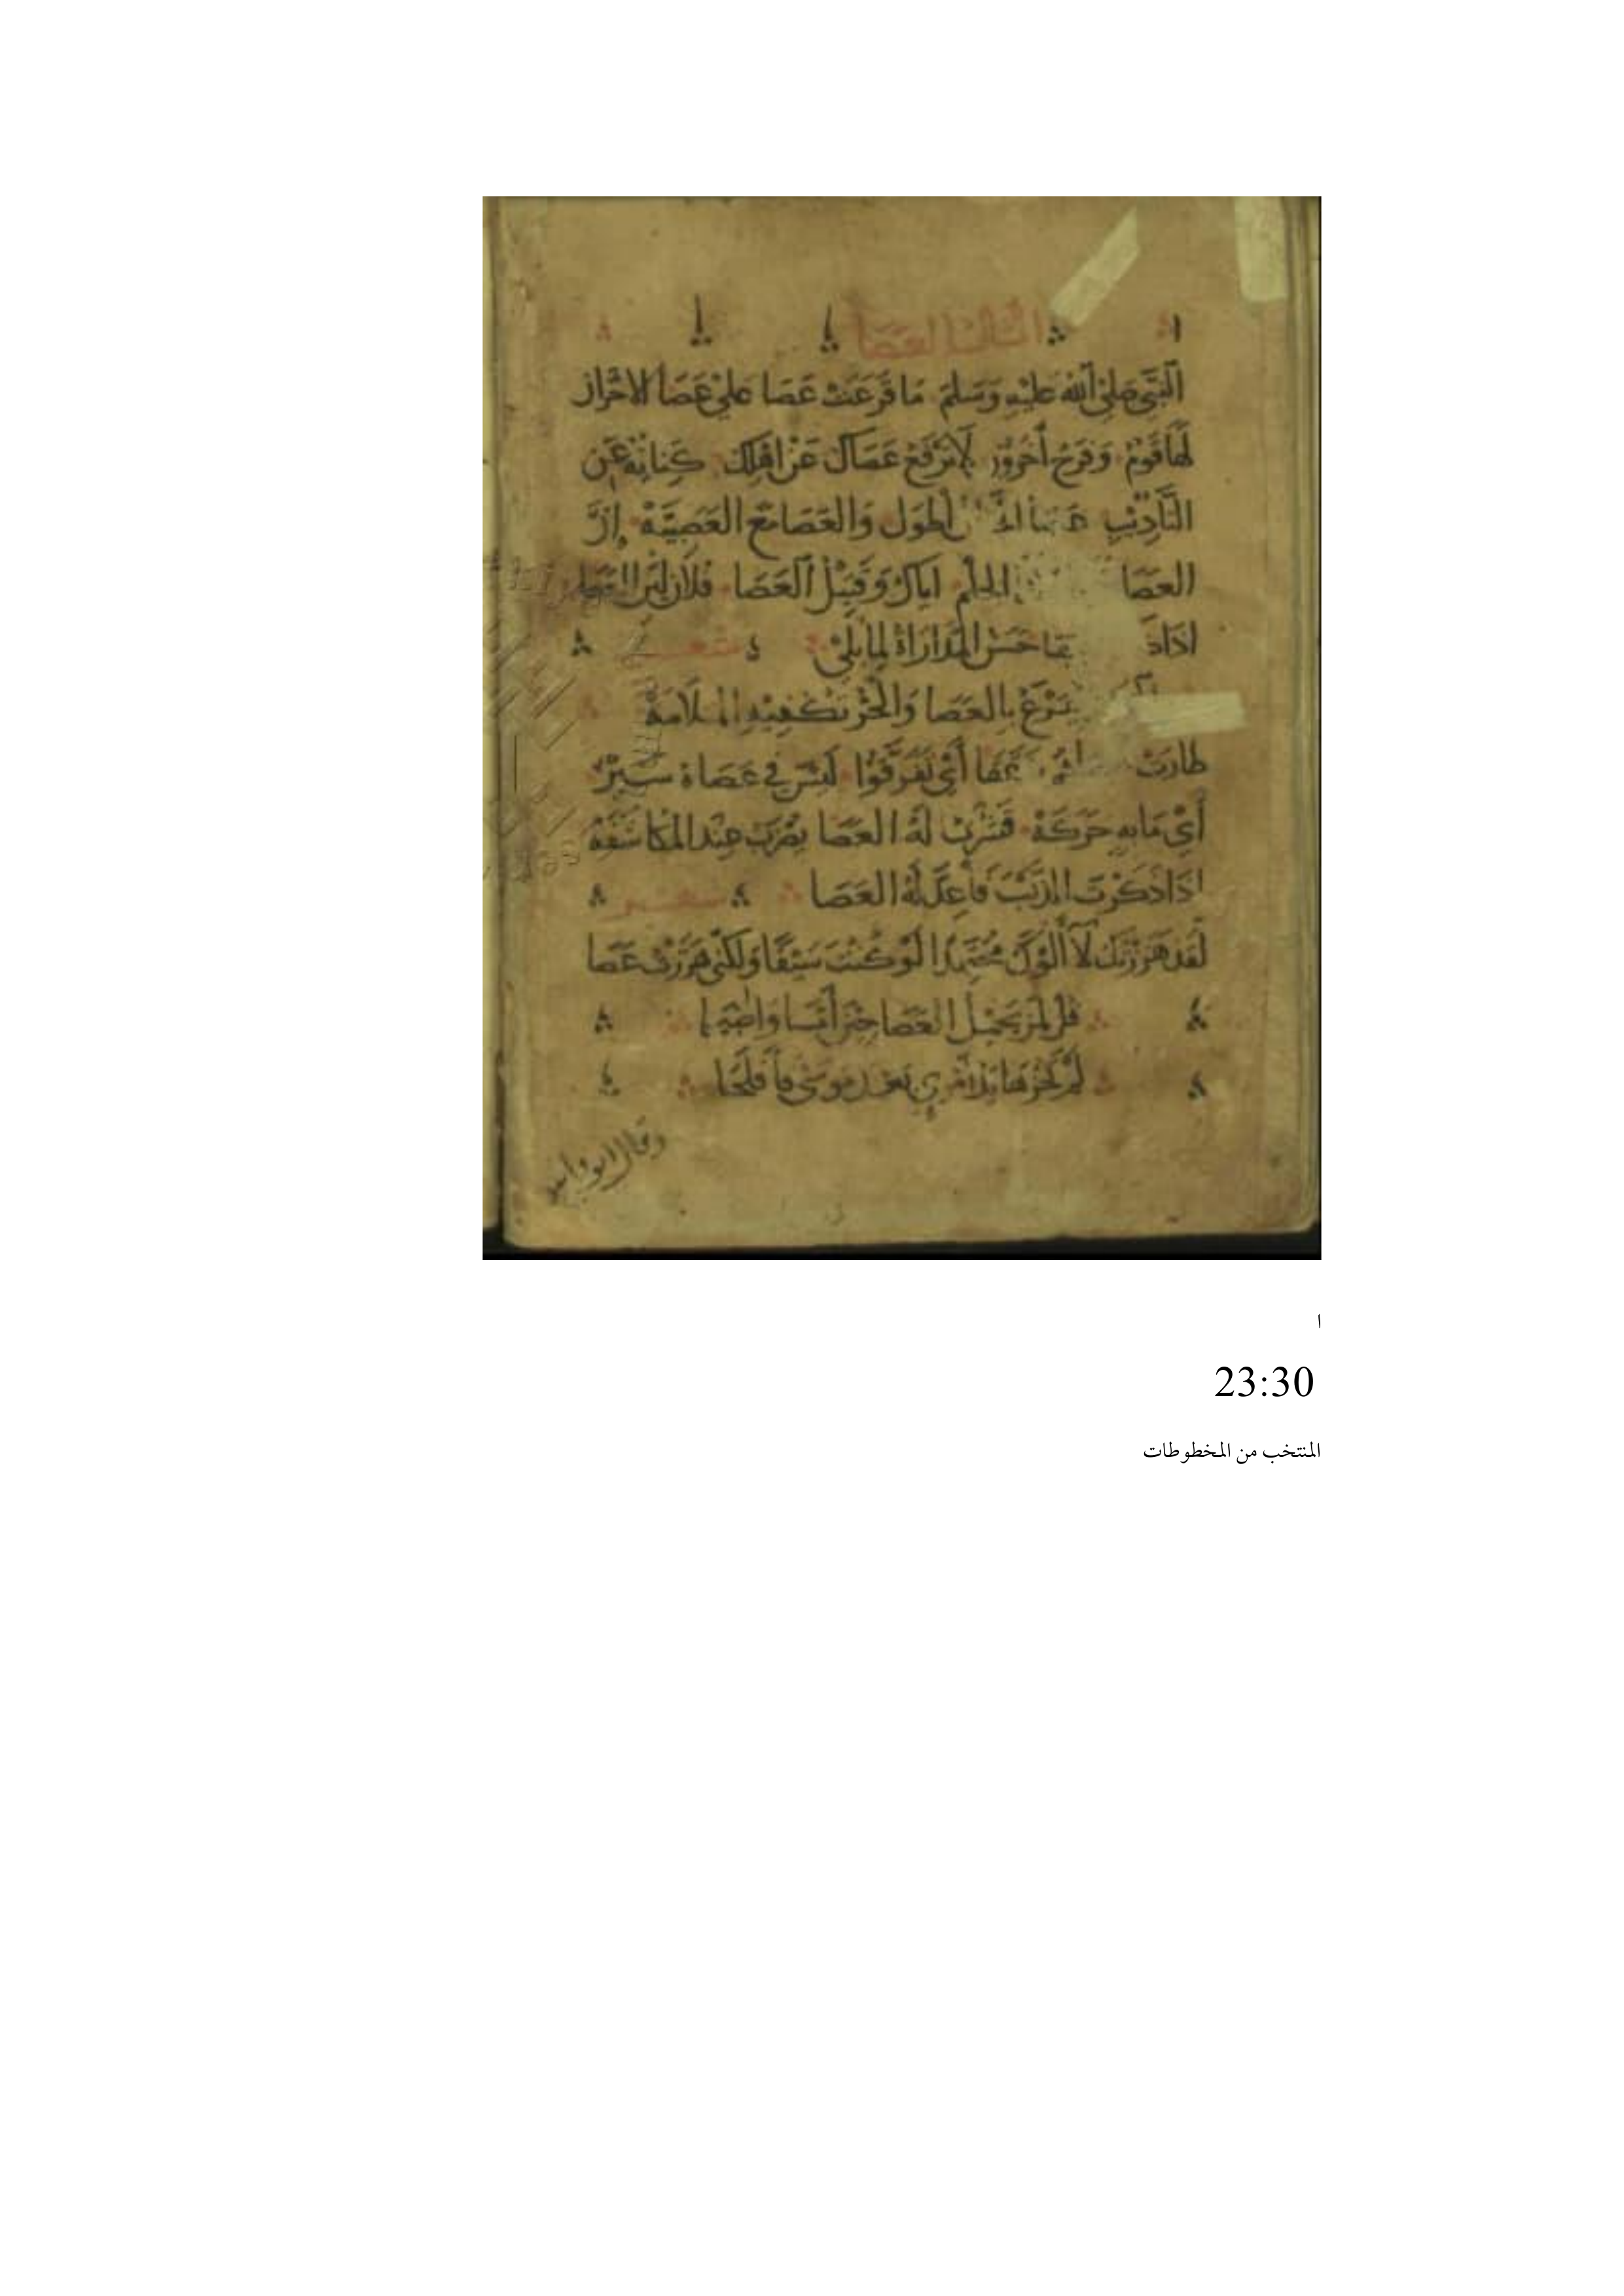 العصا
النبي صلى الله عليه وسلم ما قرعت عصا على عصا الا حزن
لها قوم وفرح آخرون لا ترفع عصاك عن اهلك كناية عن
التأديب أطول والعصا مع العصية إن
العصا الحلم اياك وقتيل العصا فلان لين العصا
اذا حسن المداراة لما يلي شعر
يقرع بالعصا والحر تكفيه الملامة
طارت أي تفرقوا ليس في عصاه سير
أي ما به حركة قشرت له العصا يضرب عند المكاشفة
اذا ذكرت الذئب فأعد له العصا شعر
لقد هززتك لا آلوك مجتهدا لو كنت سيفا ولكني هززت عصا
العصا
بعد موسى فأفلحا
وقال ابو نواس
ا
23:30
المنتخب من المخطوطات